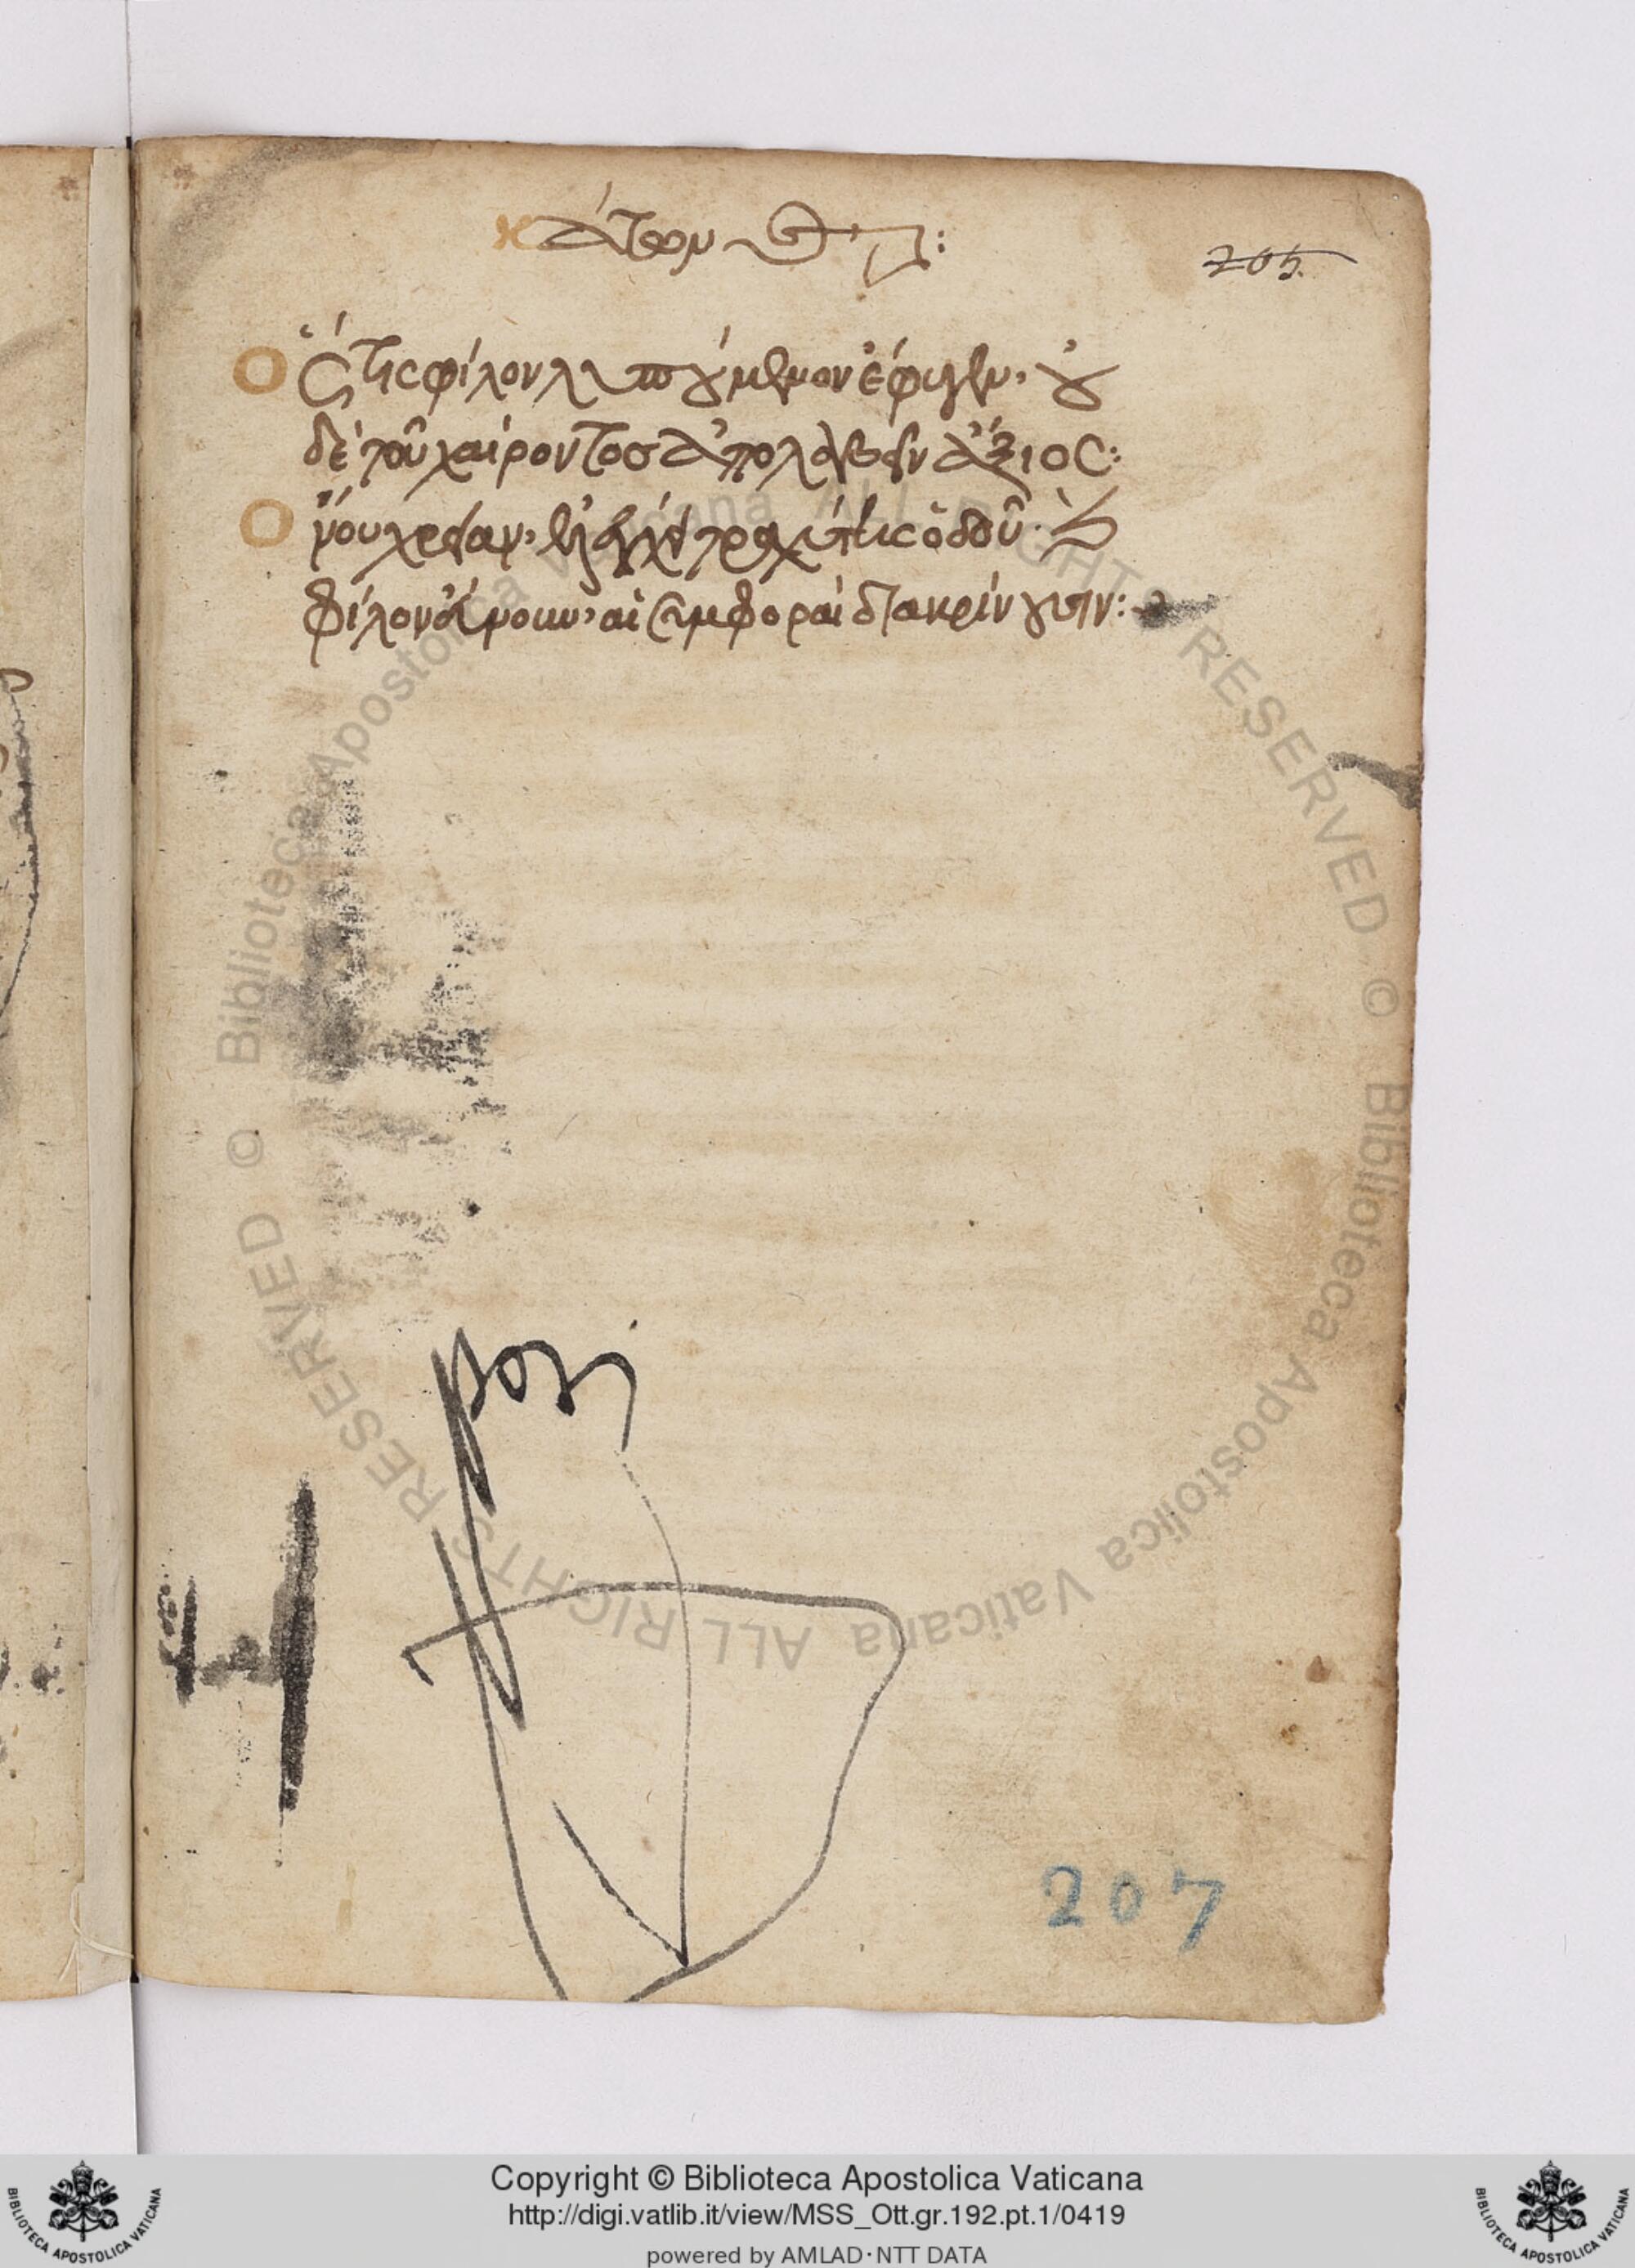 κάτων
205
Ὅςτις φίλον λυπούμενον ἔφυγεν, οὐ
δὲ τοῦ χαίροντος ἀπολαύειν ἄξιος:
Ὄνου χρείαν, ἐλέγχει τραχύτης ὁδοῦ·
φίλον εὔνουν, αἱ συμφοραὶ διακρίνουσιν:
207
© Biblioteca Apostolica Vaticana ALL RIGHTS RESERVED
© Biblioteca Apostolica Vaticana ALL RIGHTS RESERVED
Copyright © Biblioteca Apostolica Vaticana
http://digi.vatlib.it/view/MSS_Ott.gr.192.pt.1/0419
powered by AMLAD·NTT DATA
BIBLIOTECA APOSTOLICA VATICANA
BIBLIOTECA APOSTOLICA VATICANA